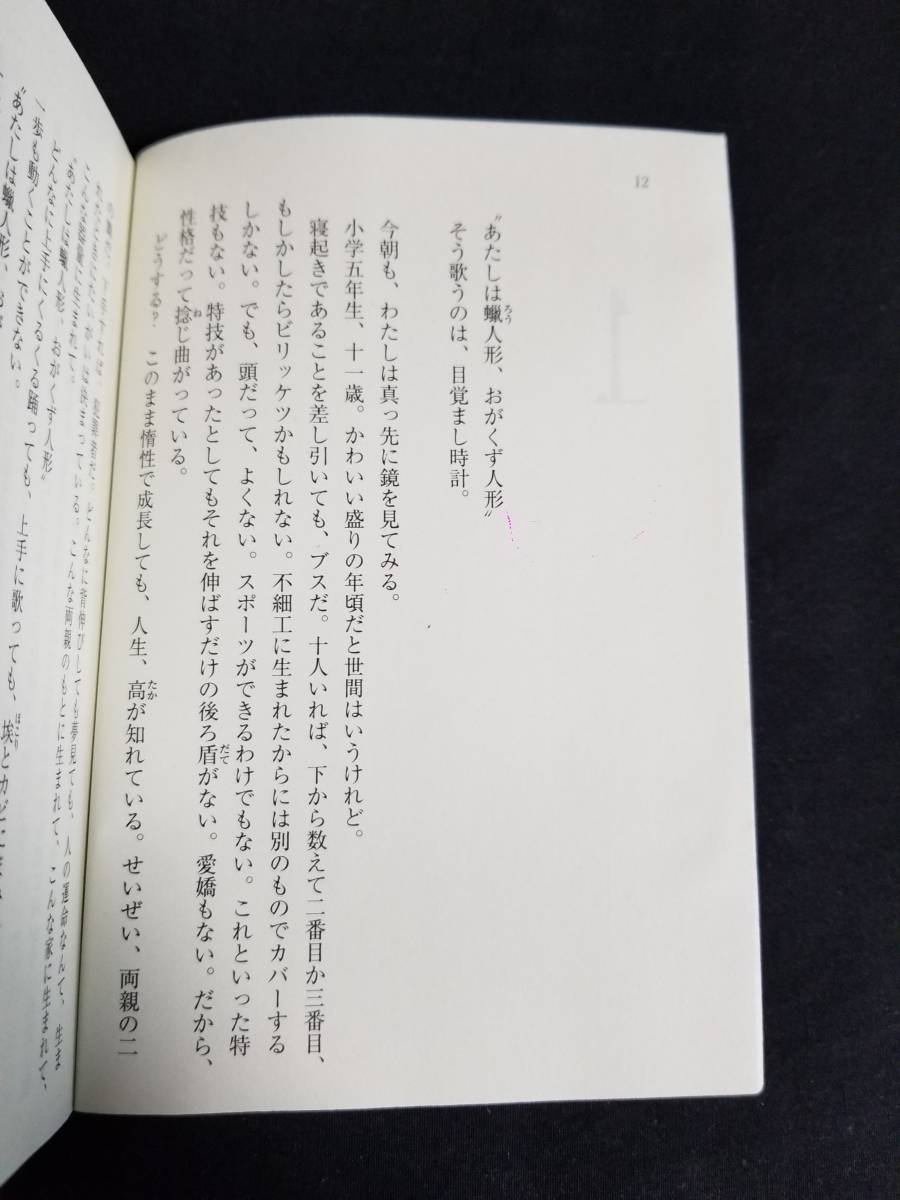 12
1
〝あたしは蠟人形、おがくず人形〟
そう歌うのは、目覚まし時計。
今朝も、わたしは真っ先に鏡を見てみる。
小学五年生、十一歳。かわいい盛りの年頃だと世間はいうけれど。
寝起きであることを差し引いても、ブスだ。十人いれば、下から数えて二番目か三番目、
もしかしたらビリッケツかもしれない。不細工に生まれたからには別のものでカバーする
しかない。でも、頭だって、よくない。スポーツができるわけでもない。これといった特
技もない。特技があったとしてもそれを伸ばすだけの後ろ盾がない。愛嬌もない。だから、
性格だって捻じ曲がっている。
どうする? このまま惰性で成長しても、人生、高が知れている。せいぜい、両親の二
どんなに背伸びしても夢見ても、人の運命なんて、生ま
こんな両親のもとに生まれて、こんな家に生まれて、
こんな器量に生まれて。
〝あたしは蠟人形、おがくず人形〟
どんなに上手にくるくる踊っても、上手に歌っても、
一歩も動くことができない。
〝あたしは蠟人形、